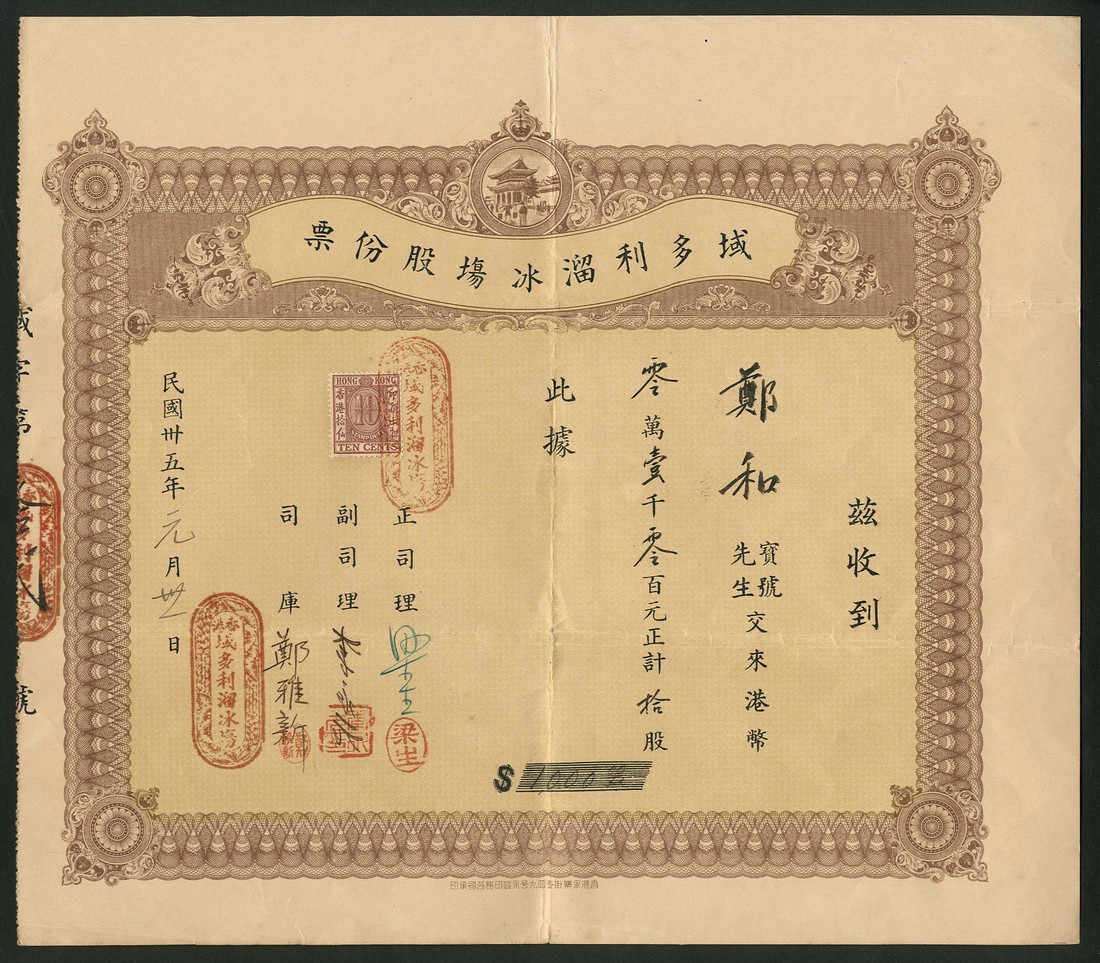 域多利溜冰塲股份票
茲收到
鄭和 寶號
先生 交來港幣
零萬壹千零百元正計拾股
此據
$ 1000
正司理 梁生
梁生
副司理
司庫 鄭雅新
民國卅五年元月卅一日
HONG KONG
10
STAMP DUTY
TEN CENTS
香港域多利溜冰塲
香港域多利溜冰塲
域字第
號